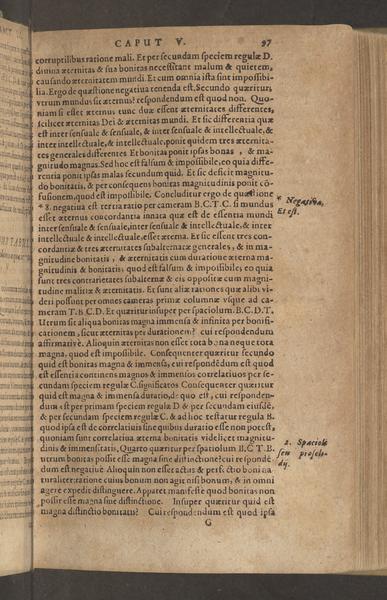 CAPUT V. 97
corruptibilius ratione mali. Et per secundam speciem regulæ D.
diuina æternitas & sua bonitas necessitant malum & quietem,
causando æternitatem mundi. Et cum omnia ista sint impossibi-
lia. Ergo de quæstione negatiua tenenda est. Secundo quæritur,
vtrum mundus sit æternus? respondendum est quod non. Quo-
niam si esset æternus tunc duæ essent æternitates differentes,
scilicet æternitas Dei & æternitas mundi. Et sic differentia quæ
est inter sensuale & sensuale, & inter sensuale & intellectuale, &
inter intellectuale, & intellectuale, ponit quidem tres æternita-
tes generales differentes Et bonitas ponit ipsas bonas , & ma-
gnitudo magnas. Sed hoc est falsum & impossibile, eo quia diffe-
rentia ponit ipsas malas secundum quid. Et sic deficit magnitu-
do bonitatis, & per consequens bonitas magnitudinis ponit cō-
fusionem, quod est impossibile. Concluditur ergo de quæstione
* 8. negatiua est tertia ratio per cameram B.C.T.C. si mundus
esset æternus concordantia innata quæ est de essentia mundi
inter sensuale & sensuale, inter sensuale & intellectuale, & inter
intellectuale & intellectuale, esset æterna. Et sic essent tres con-
cordantiæ & tres æternitates subalternatæ generales , & in ma-
gnitudine bonitatis , & æternitatis cum duratione æterna ma-
gnitudinis & bonitatis, quod est falsum & impossibile, eo quia
sunt tres contrarietates subalternæ & eis oppositæ cum magni-
tudine malitiæ & æternitatis. Et sunt aliæ rationes quæ alibi vi-
deri possunt per omnes cameras primæ columnæ vsque ad ca-
meram T.B.C.D. Et quæritur insuper per spaciolum .B.C.D.T.
Vtrum sit aliqua bonitas magna immensa & infinita per bonifi-
cationem, sicut æternitas per durationem? cui respondendum
affirmatiuè. Alioquin æternitas non esset tota bona neque tota
magna, quod est impossibile. Consequenter quæritur secundo
quid est bonitas magna & immensa, cui respondēdum est quod
est essentia continens magnos & immensos correlatiuos per se-
cundam speciem regulæ C. significatos Consequenter quæritur
quid est magna & immensa duratio, de quo est, cui responden-
dum est per primam speciem regulæ D & per secundam eiusdē,
& per secundam speciem regulæ C. & ad hoc testatur regula B.
quod ipsa est de correlatiuis sine quibus duratio esse non potest,
quoniam sunt correlatiua æterna bonitatis videlicet magnitu-
dinis & immensitatis. Quarto quæritur per spatiolum B.C T.B.
vtrum bonitas possit esse magna sine distinctione? cui respondē-
dum est negatiuè Alioquin non esset actus & perfectio boni na-
turaliter: ratione cuius bonum non agit nisi bonum, & in omni
agere expedit distinguere. Apparet manifeste quod bonitas non
possit esse magna sine distinctione. Insuper quæritur quid est
magna distinctio bonitatis? Cui respondendum est quod ipsa
G
* Negatiua,
Et est.
2. Spaciolū
seu propsolo-
dij.